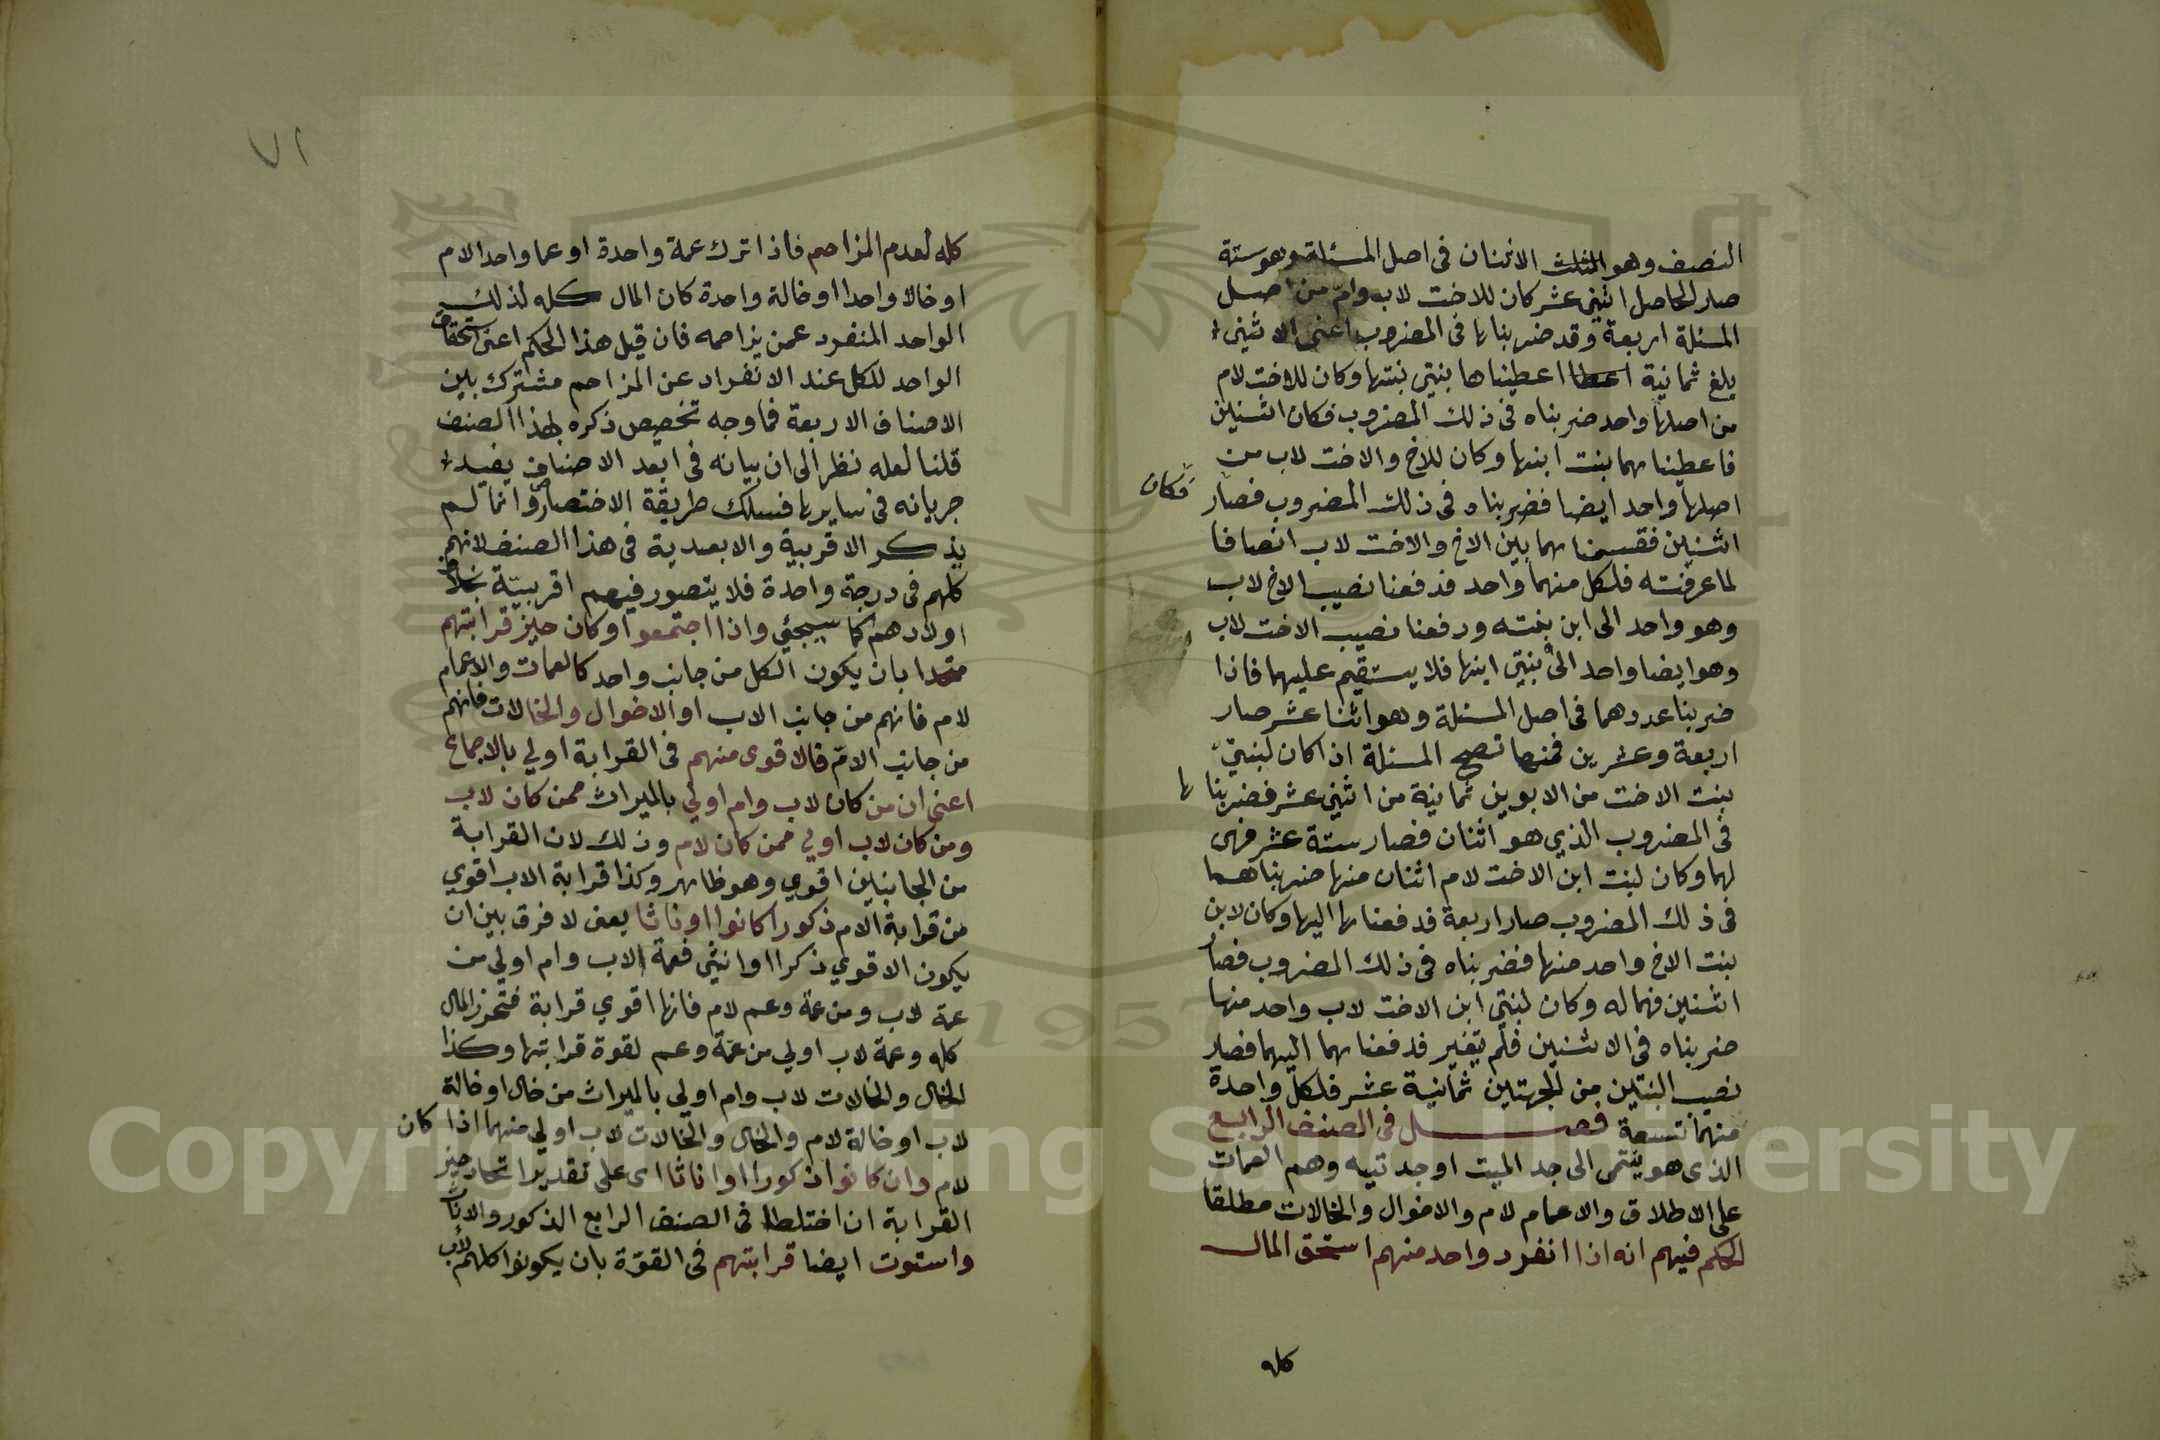 النصف وهو الثلث الاثنان فى اصل المسئلة وهو ستة
صار الحاصل اثنى عشر كان للاخت لاب وام من اصل
المسئلة اربعة وقد ضربناها فى المضروب اعنى الاثنين
بلغ ثمانية اعطا اعطيناها بنتى بنتها وكان للاخت لام
من اصلها واحد ضربناه فى ذلك المضروب فكان اثنين
فاعطيناهما بنت ابنها وكان للاخ والاخت لاب من
اصلها واحد ايضا فضربناه فى ذلك المضروب فصار
فكان
اثنين فقسمناهما بين الاخ والاخت لاب انصافا
لما عرفته فلكل منهما واحد فدفعنا نصيب الاخ لاب
وهو واحد الى ابن بنته ودفعنا نصيب الاخت لاب
وهو ايضا واحد الى بنتى ابنها فلا يستقيم عليهما فاذا
ضربنا عددهما فى اصل المسئلة وهو اثنا عشر صار
اربعة وعشرين فمنها تصح المسئلة اذ كان لبنتى
بنت الاخت من الابوين ثمانية من اثنى عشر فضربنا ها
فى المضروب الذي هو اثنان فصار ستة عشر فهى
لهما وكان لبنت ابن الاخت لام اثنان منها ضربناهما
فى ذلك المضروب صار اربعة فدفعناها اليها وكان لابن
بنت الاخ واحد منها فضربناه فى ذلك المضروب فصار
اثنين فهما له وكان لبنتى ابن الاخت لاب واحد منها
ضربناه فى الاثنين فلم يتغير فدفعناهما اليهما فصار
نصيب البنتين من الجهتين ثمانية عشر فلكل واحدة
منهما تسعة فصل فى الصنف الرابع
الذى هو ينتمى الى جد الميت او جدتيه وهم العمات
على الاطلاق والاعمام لام والاخوال والخالات مطلقا
الحكم فيهم انه اذا انفرد واحد منهم استحق المال
كله
٧١
كله لعدم المزاحم فاذا ترك عمة واحدة او عما واحدا لام
او خالا واحدا او خالة واحدة كان المال كله لذلك
الواحد المنفرد عمن يزاحمه فان قيل هذا الحكم اعنى استحقاق
الواحد للكل عند الانفراد عن المزاحم مشترك بين
الاصناف الاربعة فما وجه تخصيص ذكره بهذا الصنف
قلنا لعله نظر الى ان بيانه فى ابعد الاصناف يفيد
جريانه فى سايرها فسلك طريقة الاختصار وانما لم
يذكر الاقربية والابعدية فى هذا الصنف لانهم
كلهم فى درجة واحدة فلا يتصور فيهم اقربيتة بخلاف
اولادهم كما سيجئ واذا اجتمعوا وكان حيز قرابتهم
متحدا بان يكون الكل من جانب واحد كالعمات والاعمام
لام فانهم من جانب الاب او الاخوال والخالات فانهم
من جانب الام فالاقوى منهم فى القرابة اولي بالاجماع
اعنى ان من كان لاب وام اولي بالميراث ممن كان لاب
ومن كان لاب اولي ممن كان لام وذلك لان القرابة
من الجانبين اقوي وهو ظاهر وكذا قرابة الاب اقوي
من قرابة الام ذكورا كانوا او ناثا يعنى لا فرق بين ان
يكون الاقوي ذكرا او انثى فعمة الاب وام اولي من
عمة لاب ومن عمة وعم لام فانها اقوي قرابة فتحرز المال
كله وعمة لاب اولي من عمة وعم لقوة قرابتها وكذا
الخال والخالات لاب وام اولى بالميراث من خال او خالة
لاب او خالة لام والخال والخالات لاب اولي منهما اذا كان
لام وان كانوا ذكورا او اناثا اى على تقدير اتحاد حيز
القرابة ان اختلط فى الصنف الرابع الذكور والاناث
واستوت ايضا قرابتهم فى القوة بان يكونوا كلهم لاب